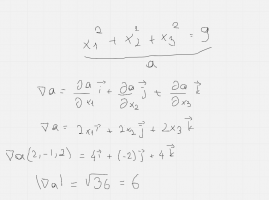 x₁² + x₂² + x₃² = 9
a
∇a = ∂a/∂x₁ i⃗ + ∂a/∂x₂ j⃗ + ∂a/∂x₃ k⃗
∇a = 2x₁i⃗ + 2x₂j⃗ + 2x₃k⃗
∇a(2,-1,2) = 4i⃗ + (-2)j⃗ + 4k⃗
|∇a| = √36 = 6